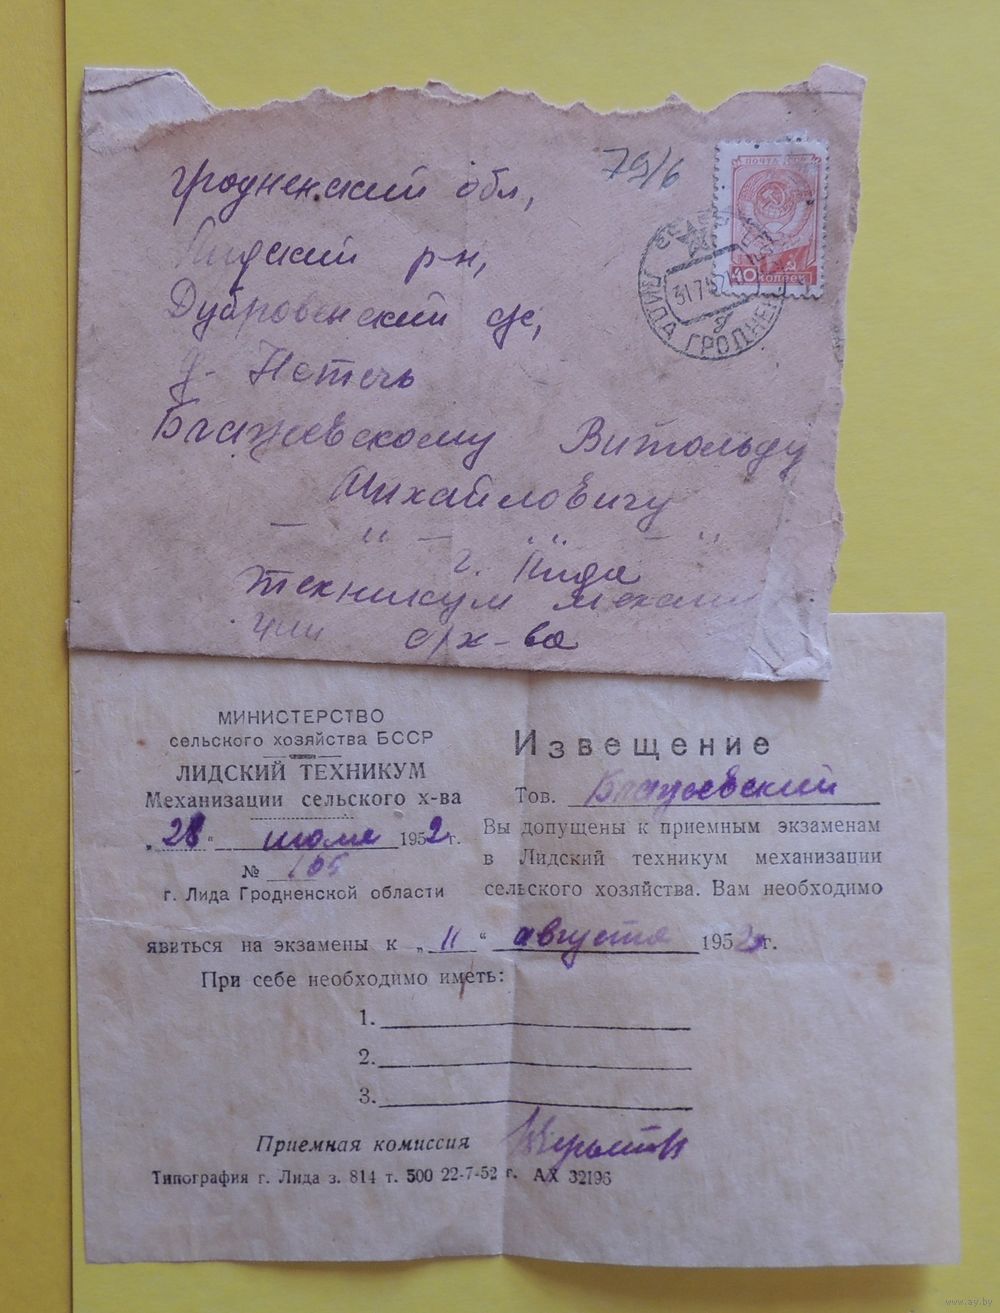 79/6
ПОЧТА СССР
40 КОПЕЕК
ЛИДА ГРОДНЕН
31 7 52
Гродненский обл,
Лидский р-н,
Дубровенский с/с,
д. Нетечь
Блажевскому Витольду
Михайловичу
— " — " — "
г. Лида
техникум механи
ции с/х-ва
МИНИСТЕРСТВО
сельского хозяйства БССР
ЛИДСКИЙ ТЕХНИКУМ
Механизации сельского х-ва
„28“ июля 1952 г.
№ 105
г. Лида Гродненской области
Извещение
Тов. Блажевский
Вы допущены к приемным экзаменам
в Лидский техникум механизации
сельского хозяйства. Вам необходимо
явиться на экзамены к „11“ августа 1952 г.
При себе необходимо иметь:
1.
2.
3.
Приемная комиссия
Типография г. Лида з. 814 т. 500 22-7-52 г. АХ 32196
www.ay.by